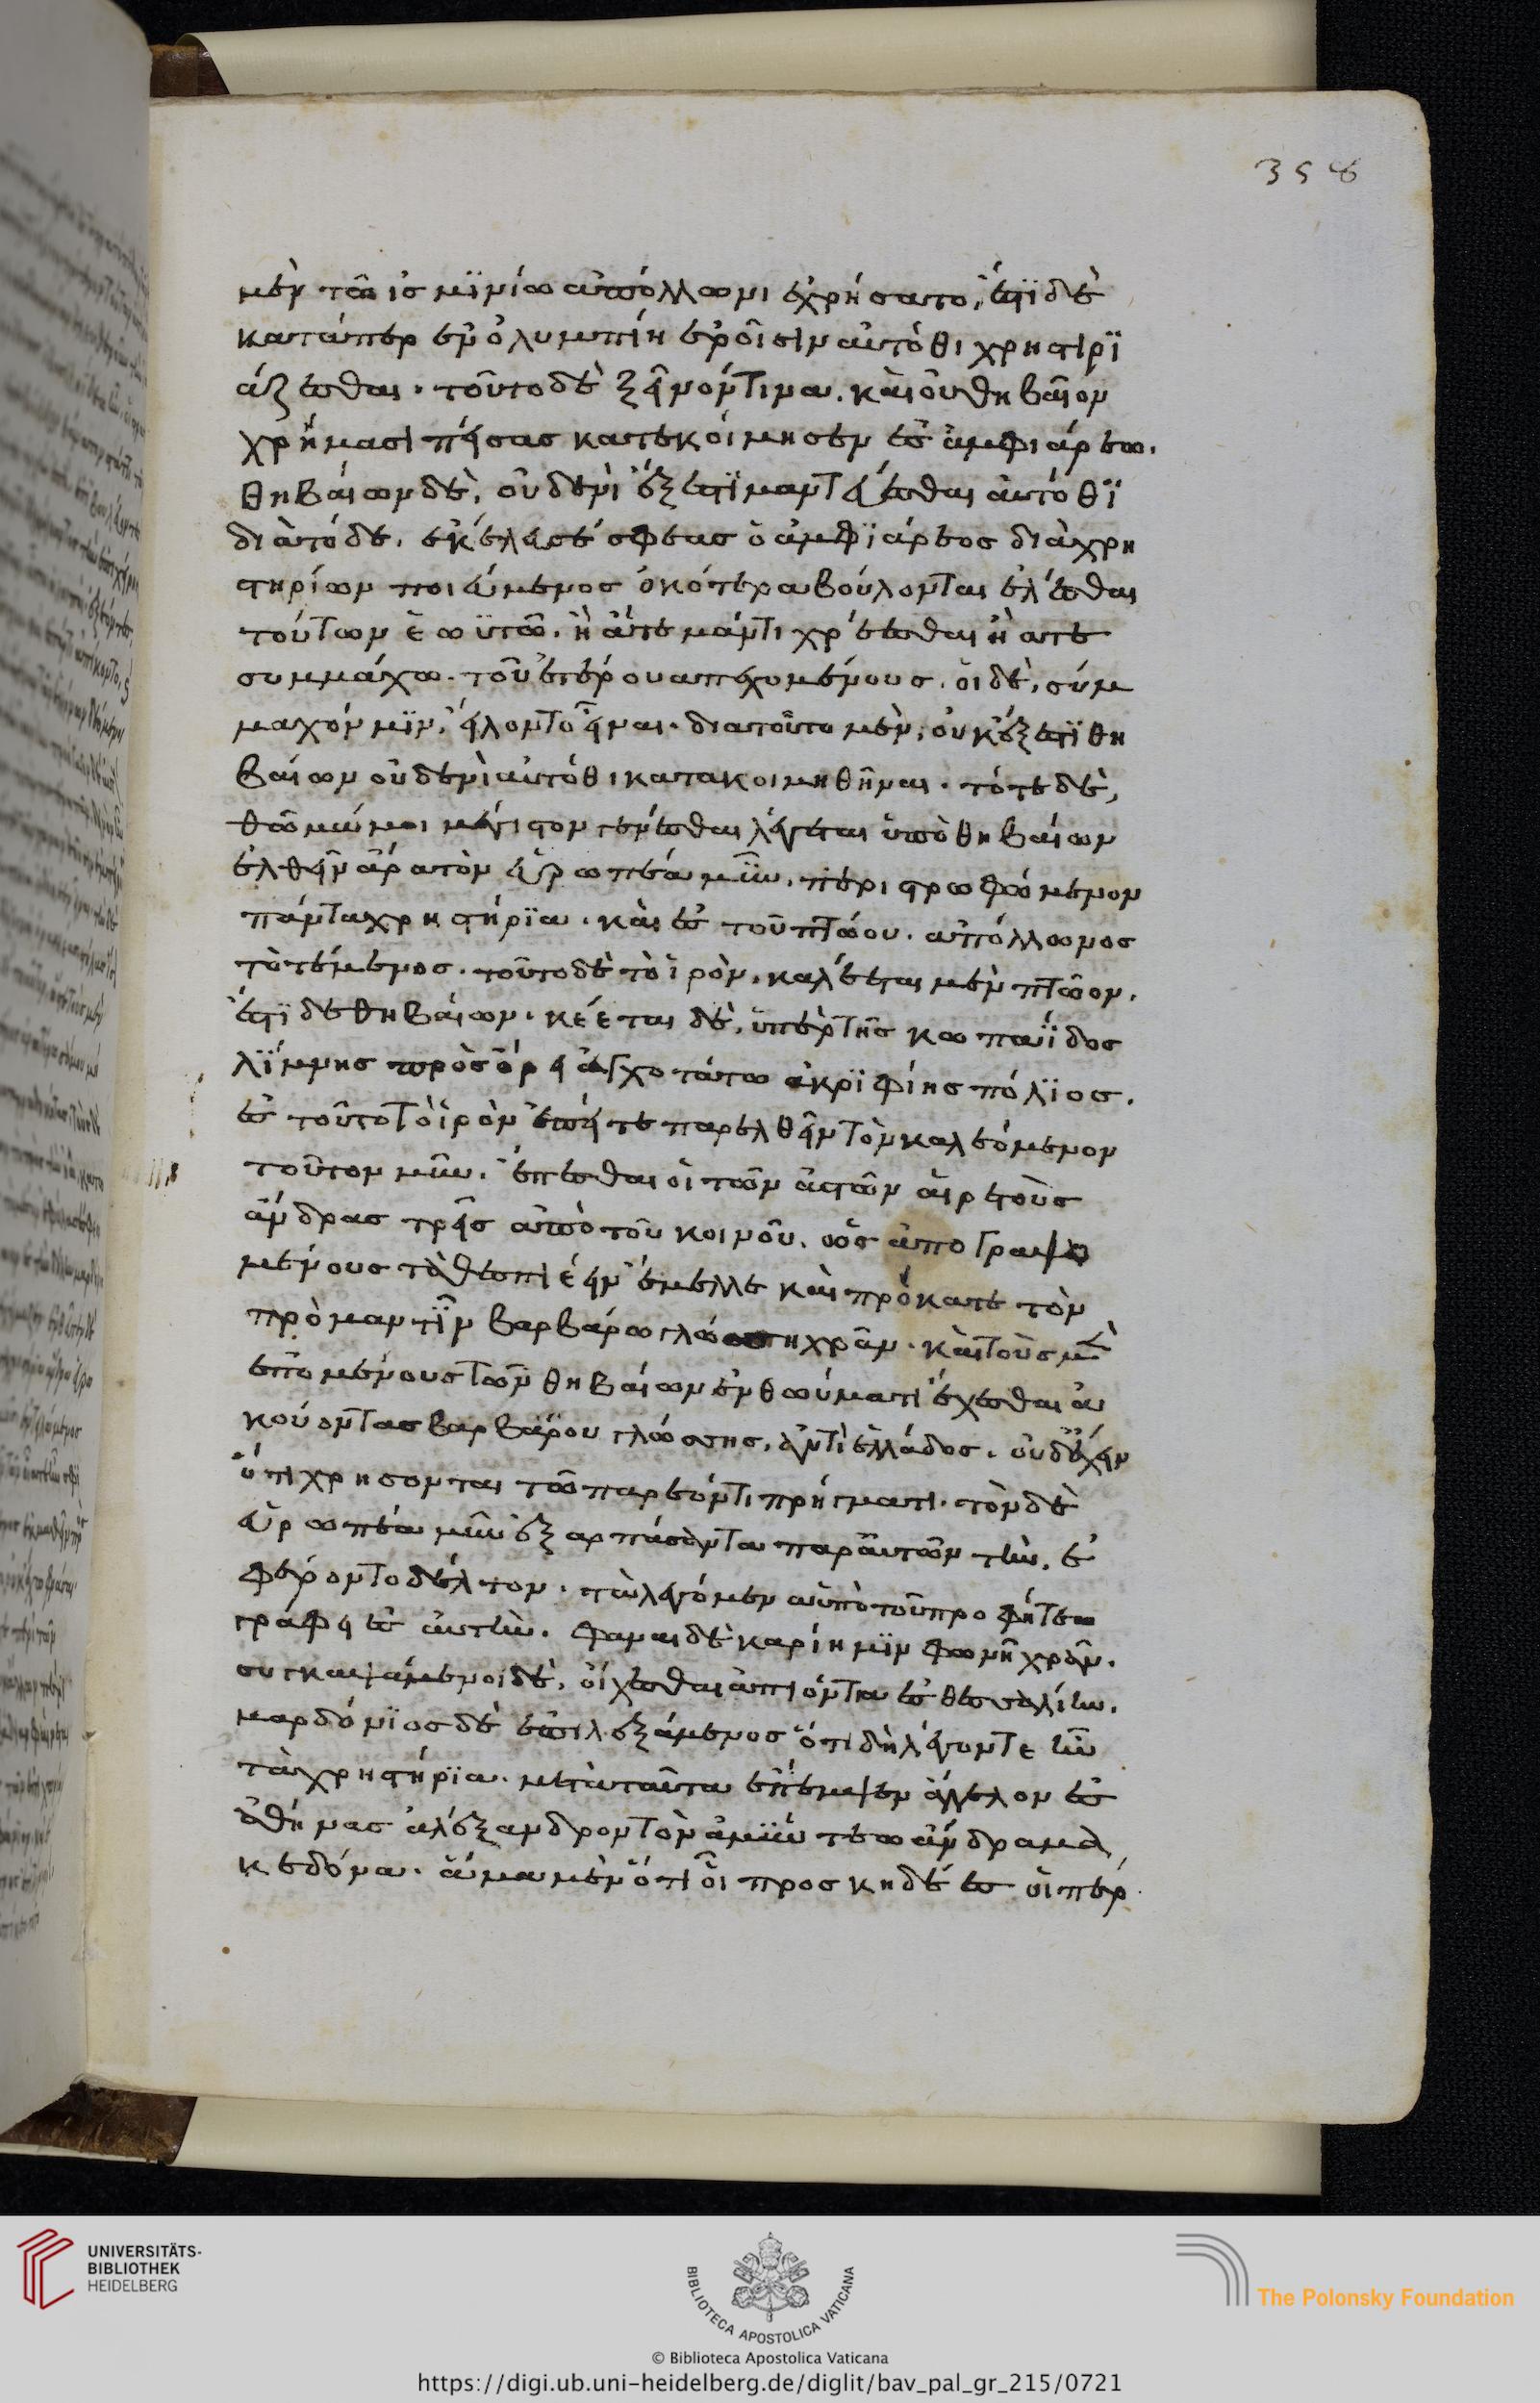 358
μὲν τῶ ἰσμϊνίω ἀπόλλωνι ἐχρήσατο, ἔστϊ δὲ
κατάπερ ἐν ὀλυμπίη ἱροῖσιν αὐτόθι χρηστηρϊ
άζεσθαι. τοῦτο δὲ ξεῖνόν τινα. καὶ οὐ θηβαῖον
χρήμασι πείσας κατεκοίμησεν ἐς ἀμφιάρεω.
θηβαίων δὲ, οὐδενὶ ἔξεστϊ μαντεύεσθαι αὐτόθϊ
διὰ τόδε. ἐκέλευσέ σφεας ὁ ἀμφϊάρεος διὰ χρη
στηρίων ποιεύμενος ὁκότερα βούλονται ἑλέσθαι
τούτων ἑωϋτῶ. ἢ ἅτε μάντι χρέεσθαι ἢ ἅτε
συμμάχω. τοῦ ἑτέρου ἀπεχομένους. οἱ δὲ, σύμ
μαχόν μϊν, εἵλοντο εἶναι. διὰ τοῦτο μὲν, οὐκ ἔξεστϊ θη
βαίων οὐδενὶ αὐτόθι κατακοιμηθῆναι. τότε δὲ,
θῶμά μοι μέγιστον γενέσθαι λέγεται ὑπὸ θηβαίων
ἐλθεῖν ἄρα τὸν εὐρωπέα μῦν. περιστρωφώμενον
πάντα χρηστήρϊα. καὶ ἐς τοῦ πτώου. ἀπόλλωνος
τὸ τέμενος. τοῦτο δὲ τὸ ἱρὸν, καλέεται μὲν πτῶον.
ἔστϊ δὲ θηβαίων. κέεται δὲ, ὑπὲρ τῆς κωπαΐδος
λΐμνης πρὸς ὄρει ἀγχοτάτω ἀκρϊφίης πόλϊος.
ἐς τοῦτο τὸ ἱρὸν ἐπεί τε παρελθεῖν τὸν καλεόμενον
τοῦτον μῦν. ἕπεσθαί οἱ τῶν ἀστῶν αἱρετοὺς
ἄνδρας τρεῖς ἀπὸ τοῦ κοινοῦ. ὡς ἀπογραψο
μένους τὰ θεσπιέειν ἔμελλε καὶ πρόκατε τὸν
πρόμαντϊν βαρβάρω γλώσση χρᾶν. καὶ τοὺς μὲν
ἑπομένους τῶν θηβαίων ἐν θωύματι ἔχεσθαι ἀ
κούοντας βαρβάρου γλώσσης, ἀντὶ ἑλλάδος. οὐδ' ἔχειν
ὅ τι χρήσονται τῶ παρεόντι πρήγματι. τὸν δὲ
εὐρωπέα μῦν ἐξαρπάσαντα παρ' αὐτῶν τὴν, ἐ
φέροντο δέλτον. τὰ λεγόμενα ὑπὸ τοῦ προφήτεω
γράφει ἐς αὐτὴν. φάναι δὲ καρίη μϊν φωνῆ χρᾶν.
συγκαψάμενοι δὲ, οἴχεσθαι ἀπιόντα ἐς θεσσαλίην.
μαρδόνϊος δὲ ἐπιλεξάμενος ὅ τι δὴ λέγοντε ἦν
τὰ χρηστήρϊα. μετὰ ταῦτα ἔπεμψεν ἄγγελον ἐς
ἀθήνας ἀλέξανδρον τὸν ἀμΰντεω ἄνδρα μα
κεδόνα. ἅμα μὲν ὅτι οἱ προσκηδέες οἱ πέρ
UNIVERSITÄTS-
BIBLIOTHEK
HEIDELBERG
BIBLIOTECA APOSTOLICA VATICANA
The Polonsky Foundation
© Biblioteca Apostolica Vaticana
https://digi.ub.uni-heidelberg.de/diglit/bav_pal_gr_215/0721